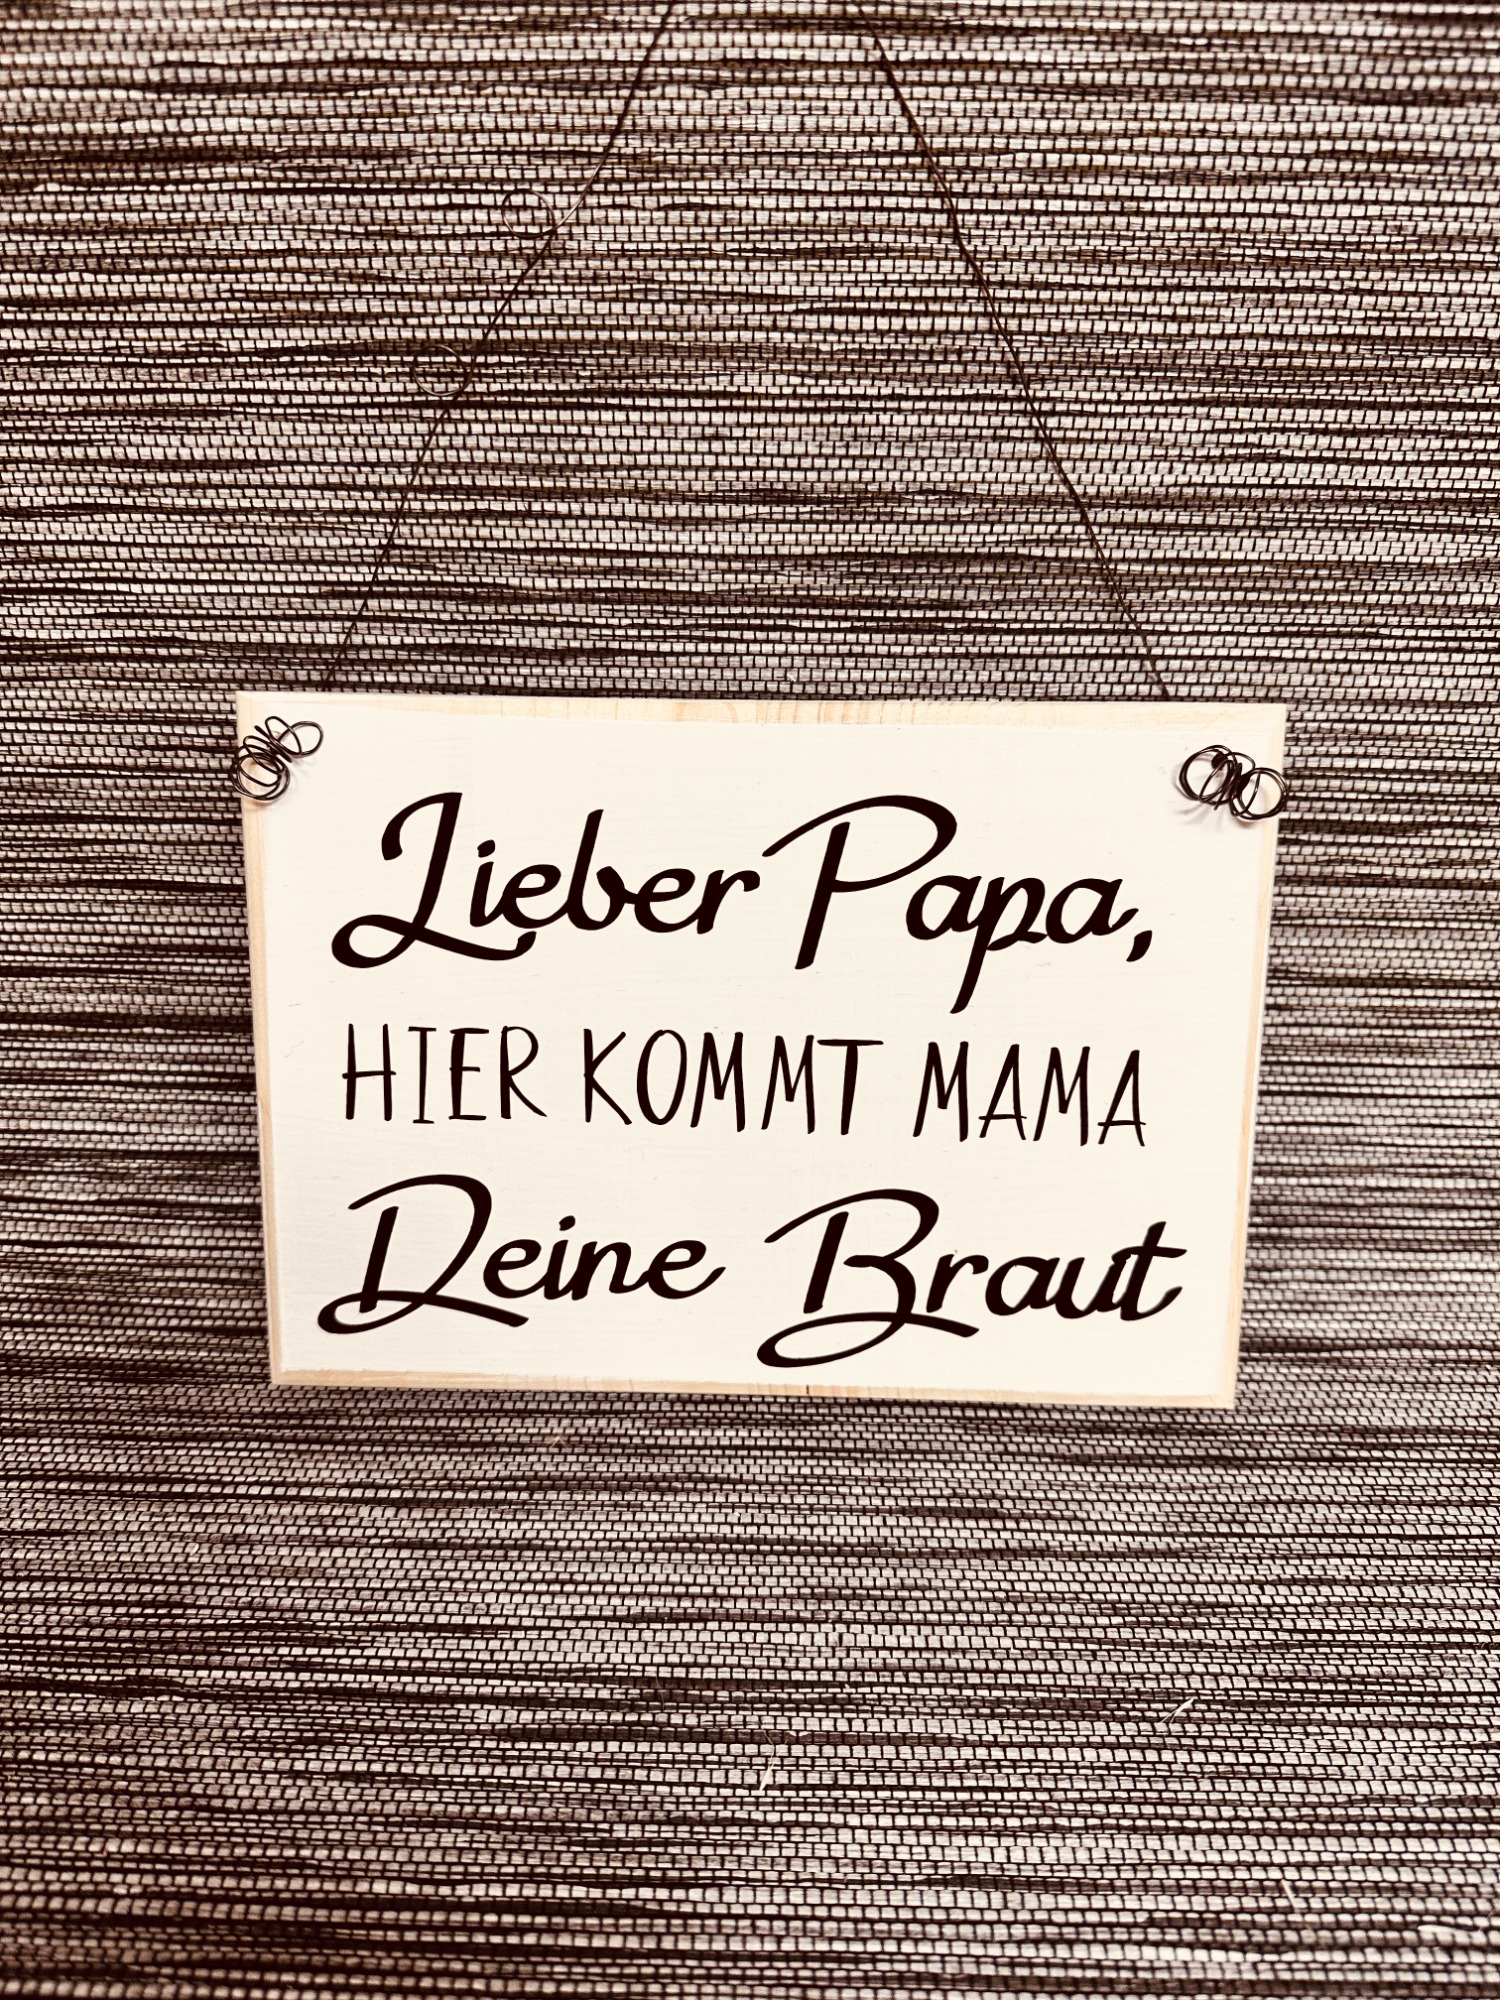 Lieber Papa,
HIER KOMMT MAMA
Deine Braut